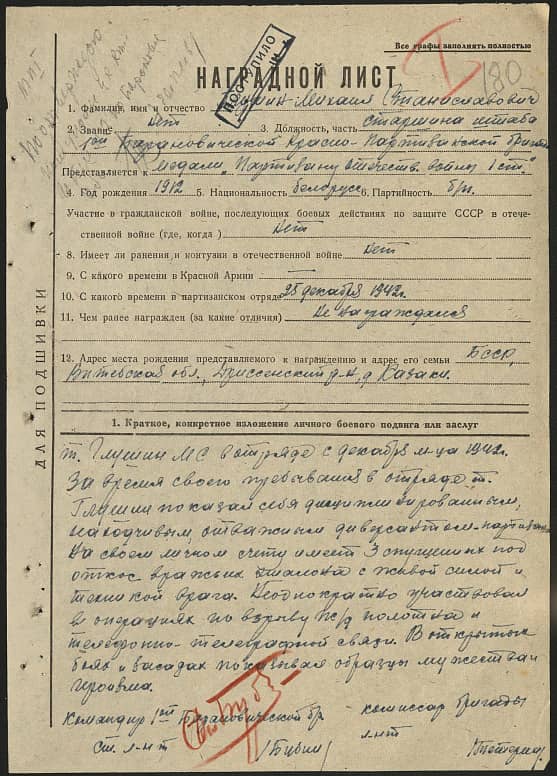 Все графы заполнять полностью
180
ПОСТУПИЛО
НАГРАДНОЙ ЛИСТ
1. Фамилия, имя и отчество Глушин Михаил Станиславович
2. Звание Нет 3. Должность, часть старшина штаба
1ой Барановической Красно-Партизанской бригады
Представляется к медали "Партизану отечеств. войны 1 ст."
4. Год рождения 1912 5. Национальность белорусс 6. Партийность б/п.
Участие в гражданской войне, последующих боевых действиях по защите СССР и отече-
ственной войне (где, когда) Нет
8. Имеет ли ранения и контузии в отечественной войне Нет
9. С какого времени в Красной Армии
10. С какого времени в партизанском отряде 25 декабря 1942г.
11. Чем ранее награжден (за какие отличия) Не награждался
12. Адрес места рождения представляемого к награждению и адрес его семьи БССР,
Витебская обл., Дриссенский р-н, д. Казаки.
ДЛЯ ПОДШИВКИ
1. Краткое, конкретное изложение личного боевого подвига или заслуг
т. Глушин МС в отряде с декабря м-ца 1942г.
За время своего пребывания в отряде т.
Глушин показал себя дисциплинированным,
находчивым, отважным диверсантом-партизан
На своем личном счету имеет 3 спущенных под
откос вражьих эшалона с живой силой и
техникой врага. Неоднократно участвовал
в операциях по взрыву ж/д полотна и
телефонно-телеграфной связи. В открытых
боях и засадах показывал образцы мужества и
героизма.
Командир 1ой Барановической бр комиссар бригады
ст. л-нт л-нт